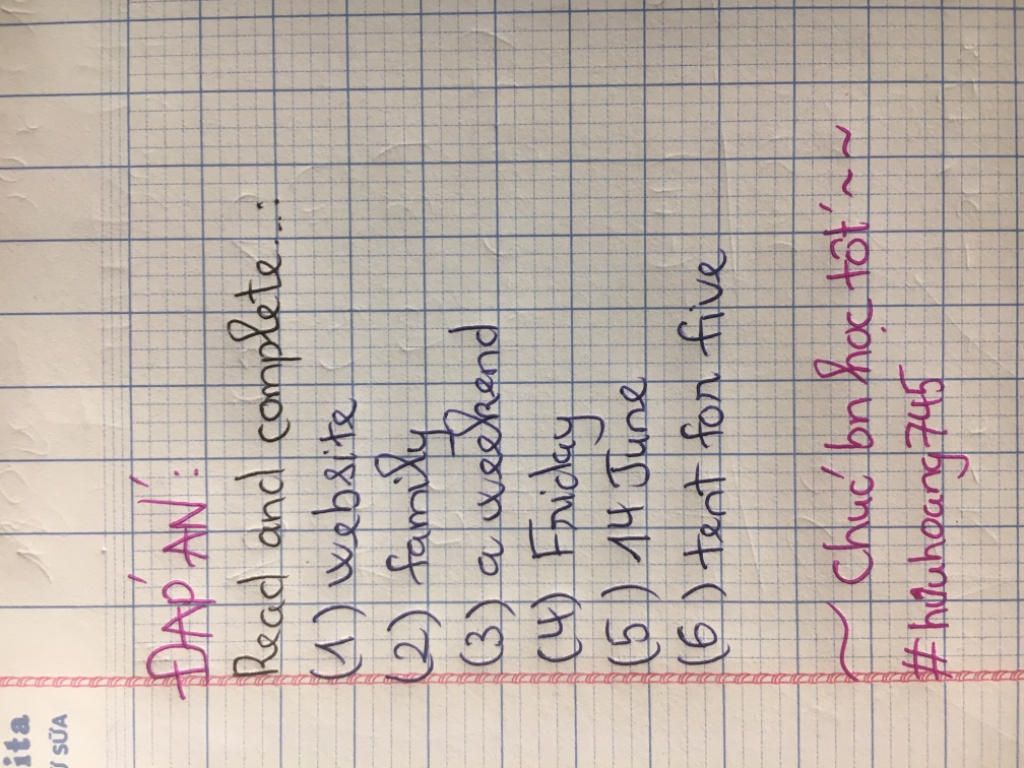 ita
SỮA
ĐÁP ÁN:
Read and complete...:
(1) website
(2) family
(3) a weekend
(4) Friday
(5) 14 June
(6) tent for five
~ Chúc bn học tốt ~ ~
#hiuhoang745